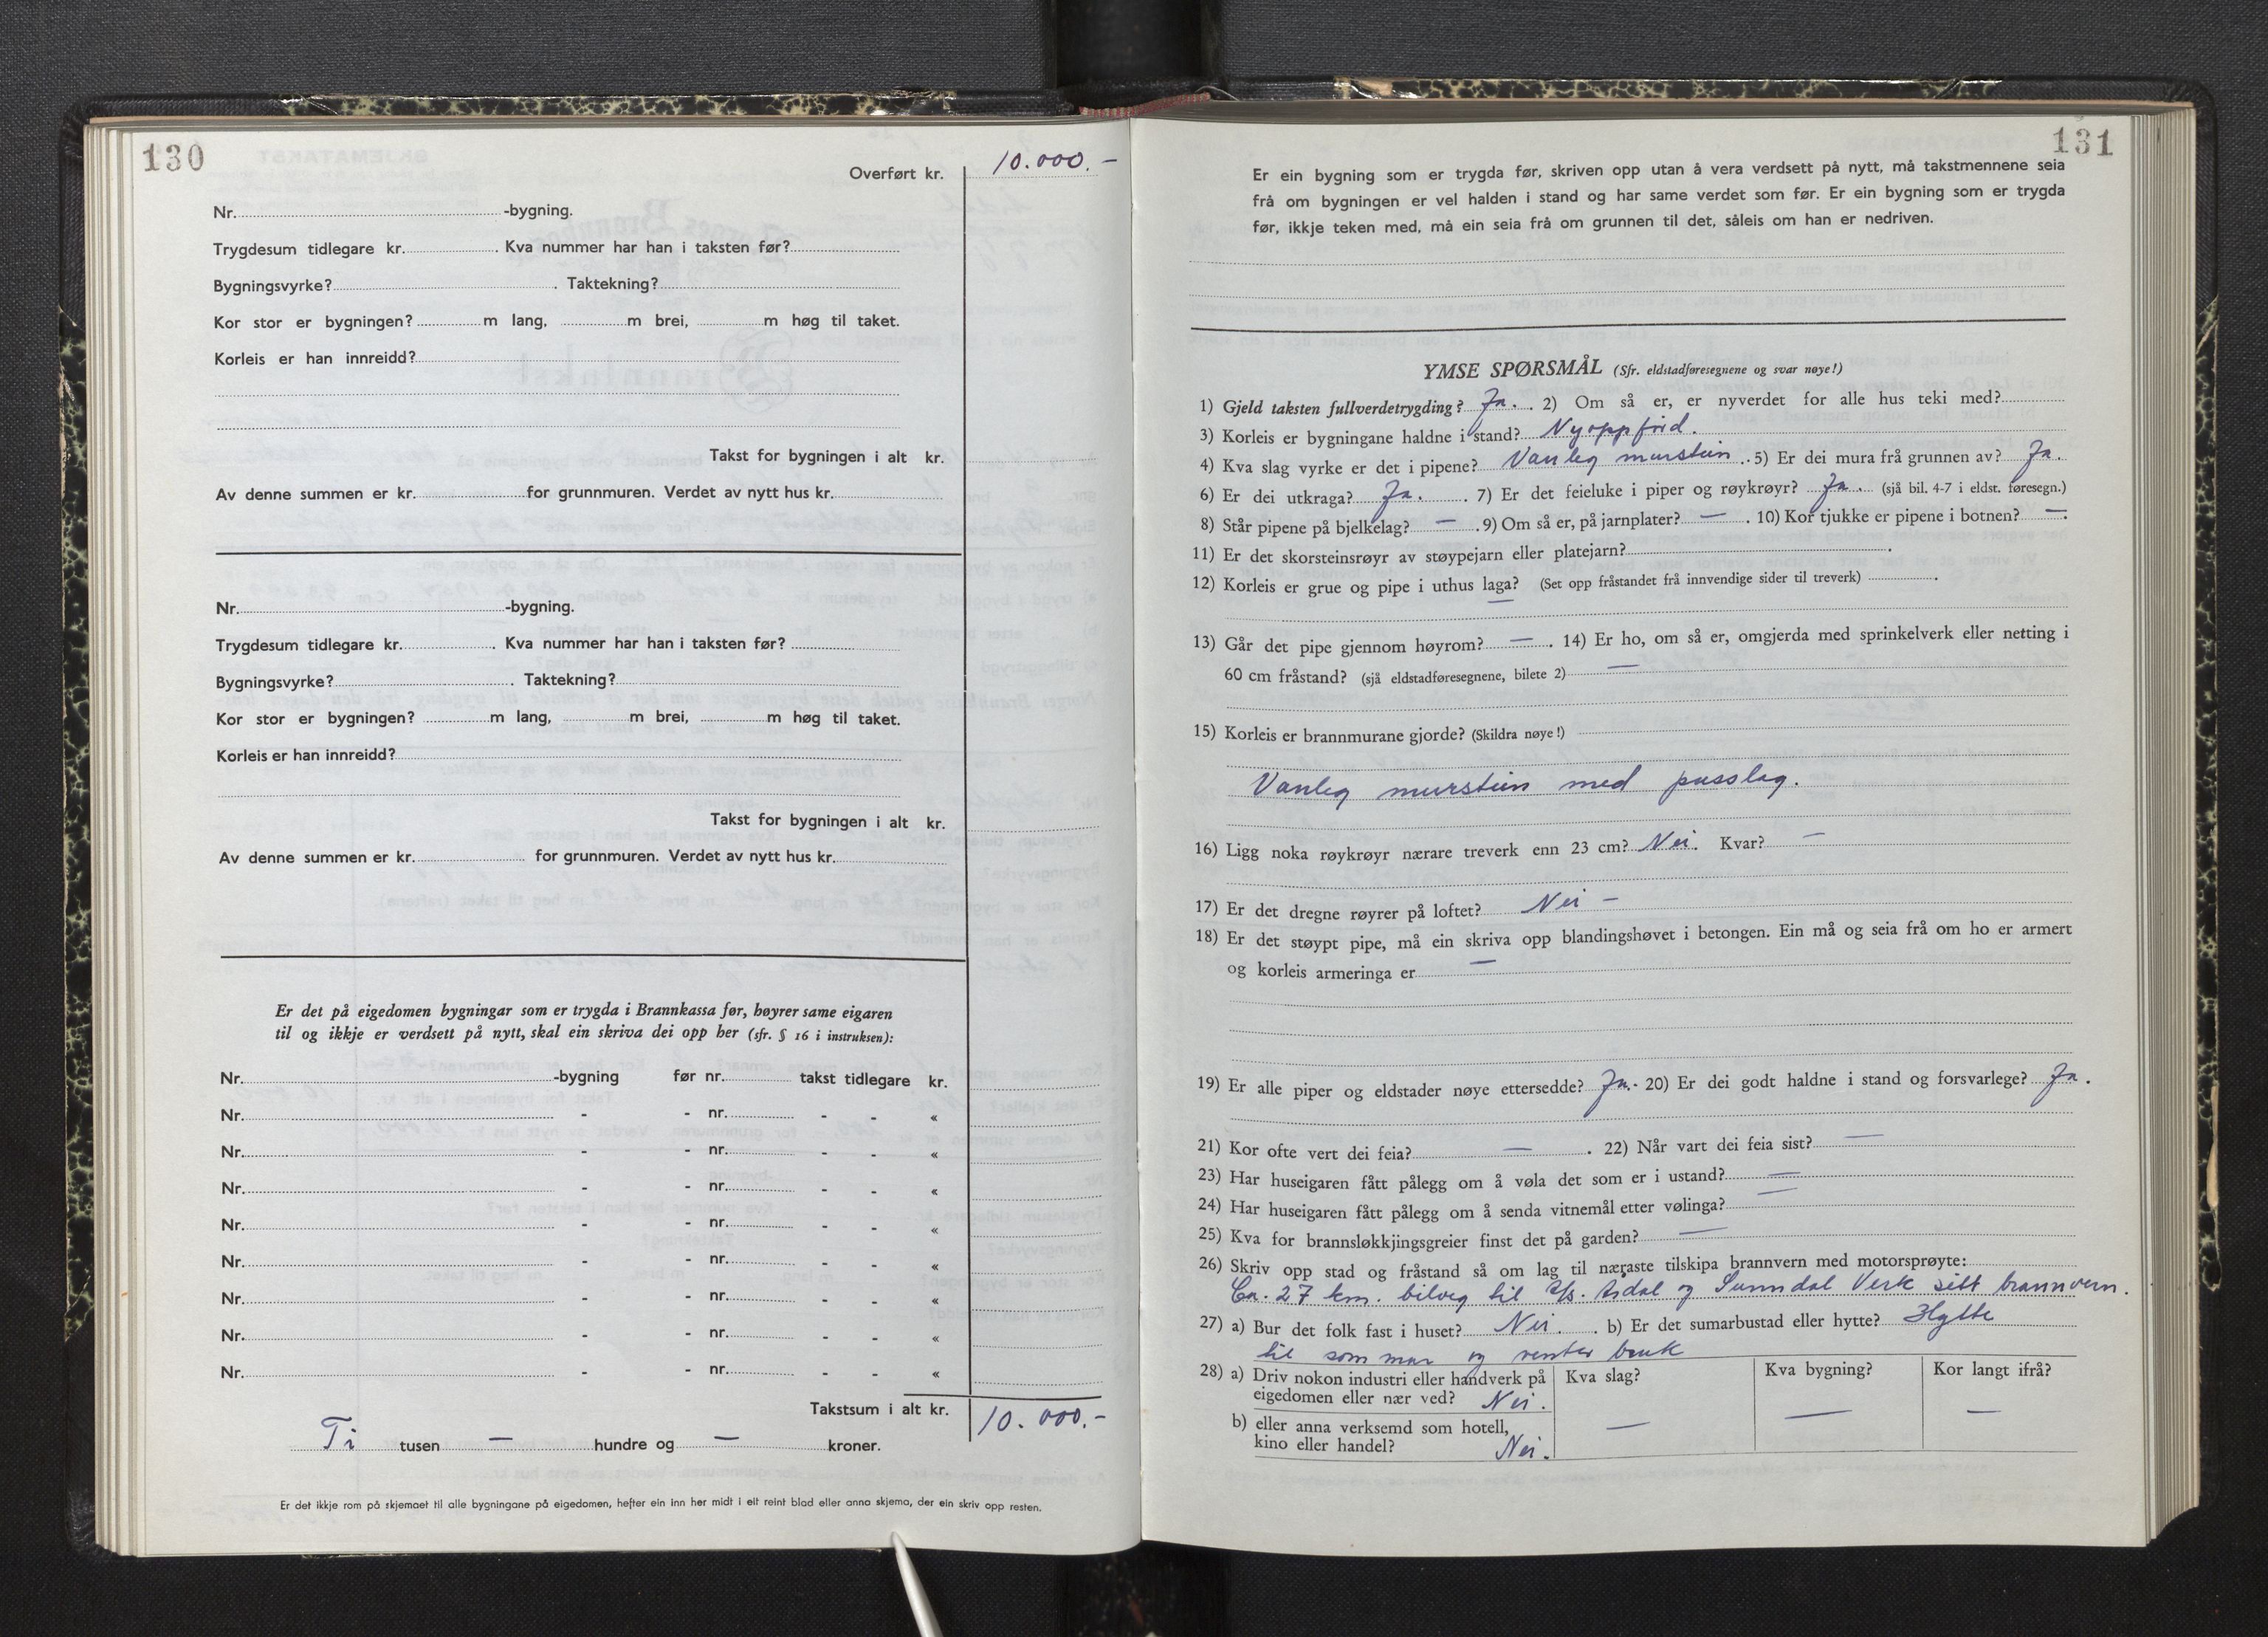 130
Overført kr. 10.000.-
Nr. -bygning.
Trygdesum tidlegare kr. . Kva nummer har han i taksten før?
Bygningsvyrke? . Taktekning?
Kor stor er bygningen? m lang, m brei, m høg til taket.
Korleis er han innreidd?
Takst for bygningen i alt kr.
Av denne summen er kr. for grunnmuren. Verdet av nytt hus kr.
Nr. -bygning.
Trygdesum tidlegare kr. . Kva nummer har han i taksten før?
Bygningsvyrke? . Taktekning?
Kor stor er bygningen? m lang, m brei, m høg til taket.
Korleis er han innreidd?
Takst for bygningen i alt kr.
Av denne summen er kr. for grunnmuren. Verdet av nytt hus kr.
Er det på eigedomen bygningar som er trygda i Brannkassa før, høyrer same eigaren
til og ikkje er verdsett på nytt, skal ein skriva dei opp her (sfr. § 16 i instruksen):
Nr. -bygning før nr. takst tidlegare kr.
Nr. - - nr. - - «
Nr. - - nr. - - «
Nr. - - nr. - - «
Nr. - - nr. - - «
Nr. - - nr. - - «
Nr. - - nr. - - «
Nr. - - nr. - - «
Nr. - - nr. - - «
Takstsum i alt kr. 10.000.-
Ti tusen — hundre og — kroner.
Er det ikkje rom på skjemaet til alle bygningane på eigedomen, hefter ein inn her midt i eit reint blad eller anna skjema, der ein skriv opp resten.
131
Er ein bygning som er trygda før, skriven opp utan å vera verdsett på nytt, må takstmennene seia
frå om bygningen er vel halden i stand og har same verdet som før. Er ein bygning som er trygda
før, ikkje teken med, må ein seia frå om grunnen til det, såleis om han er nedriven.
YMSE SPØRSMÅL (Sfr. eldstadføresegnene og svar nøye!)
1) Gjeld taksten fullverdetrygding? Ja. . 2) Om så er, er nyverdet for alle hus teki med?
3) Korleis er bygningane haldne i stand? Nyoppførd.
4) Kva slag vyrke er det i pipene? Vanleg murstein . 5) Er dei mura frå grunnen av? Ja.
6) Er dei utkraga? Ja. . 7) Er det feieluke i piper og røykrøyr? Ja. (sjå bil. 4-7 i eldst. føresegn.)
8) Står pipene på bjelkelag? — . 9) Om så er, på jarnplater? — . 10) Kor tjukke er pipene i botnen? — .
11) Er det skorsteinsrøyr av støypejarn eller platejarn? .
12) Korleis er grue og pipe i uthus laga? (Set opp fråstandet frå innvendige sider til treverk) .
—
13) Går det pipe gjennom høyrom? — . 14) Er ho, om så er, omgjerda med sprinkelverk eller netting i
60 cm fråstand? (sjå eldstadføresegnene, bilete 2) —
15) Korleis er brannmurane gjorde? (Skildra nøye!)
Vanleg murstein med pusslag.
16) Ligg noka røykrøyr nærare treverk enn 23 cm? Nei. Kvar? —
17) Er det dregne røyrer på loftet? Nei —
18) Er det støypt pipe, må ein skriva opp blandingshøvet i betongen. Ein må og seia frå om ho er armert
og korleis armeringa er —
19) Er alle piper og eldstader nøye ettersedde? Ja. . 20) Er dei godt haldne i stand og forsvarlege? Ja.
21) Kor ofte vert dei feia? — . 22) Når vart dei feia sist? —
23) Har huseigaren fått pålegg om å vøla det som er i ustand? —
24) Har huseigaren fått pålegg om å senda vitnemål etter vølinga? —
25) Kva for brannsløkkjingsgreier finst det på garden? —
26) Skriv opp stad og fråstand så om lag til næraste tilskipa brannvern med motorsprøyte:
Ca. 27 km. bilveg til og Sunndal Verk sitt brannvern.
27) a) Bur det folk fast i huset? Nei. . b) Er det sumarbustad eller hytte? Hytte
til sommar og venter bruk
28) a) Driv nokon industri eller handverk på
eigedomen eller nær ved? Nei.
Kva slag? Kva bygning? Kor langt ifrå?
b) eller anna verksemd som hotell,
kino eller handel? Nei.
— — —